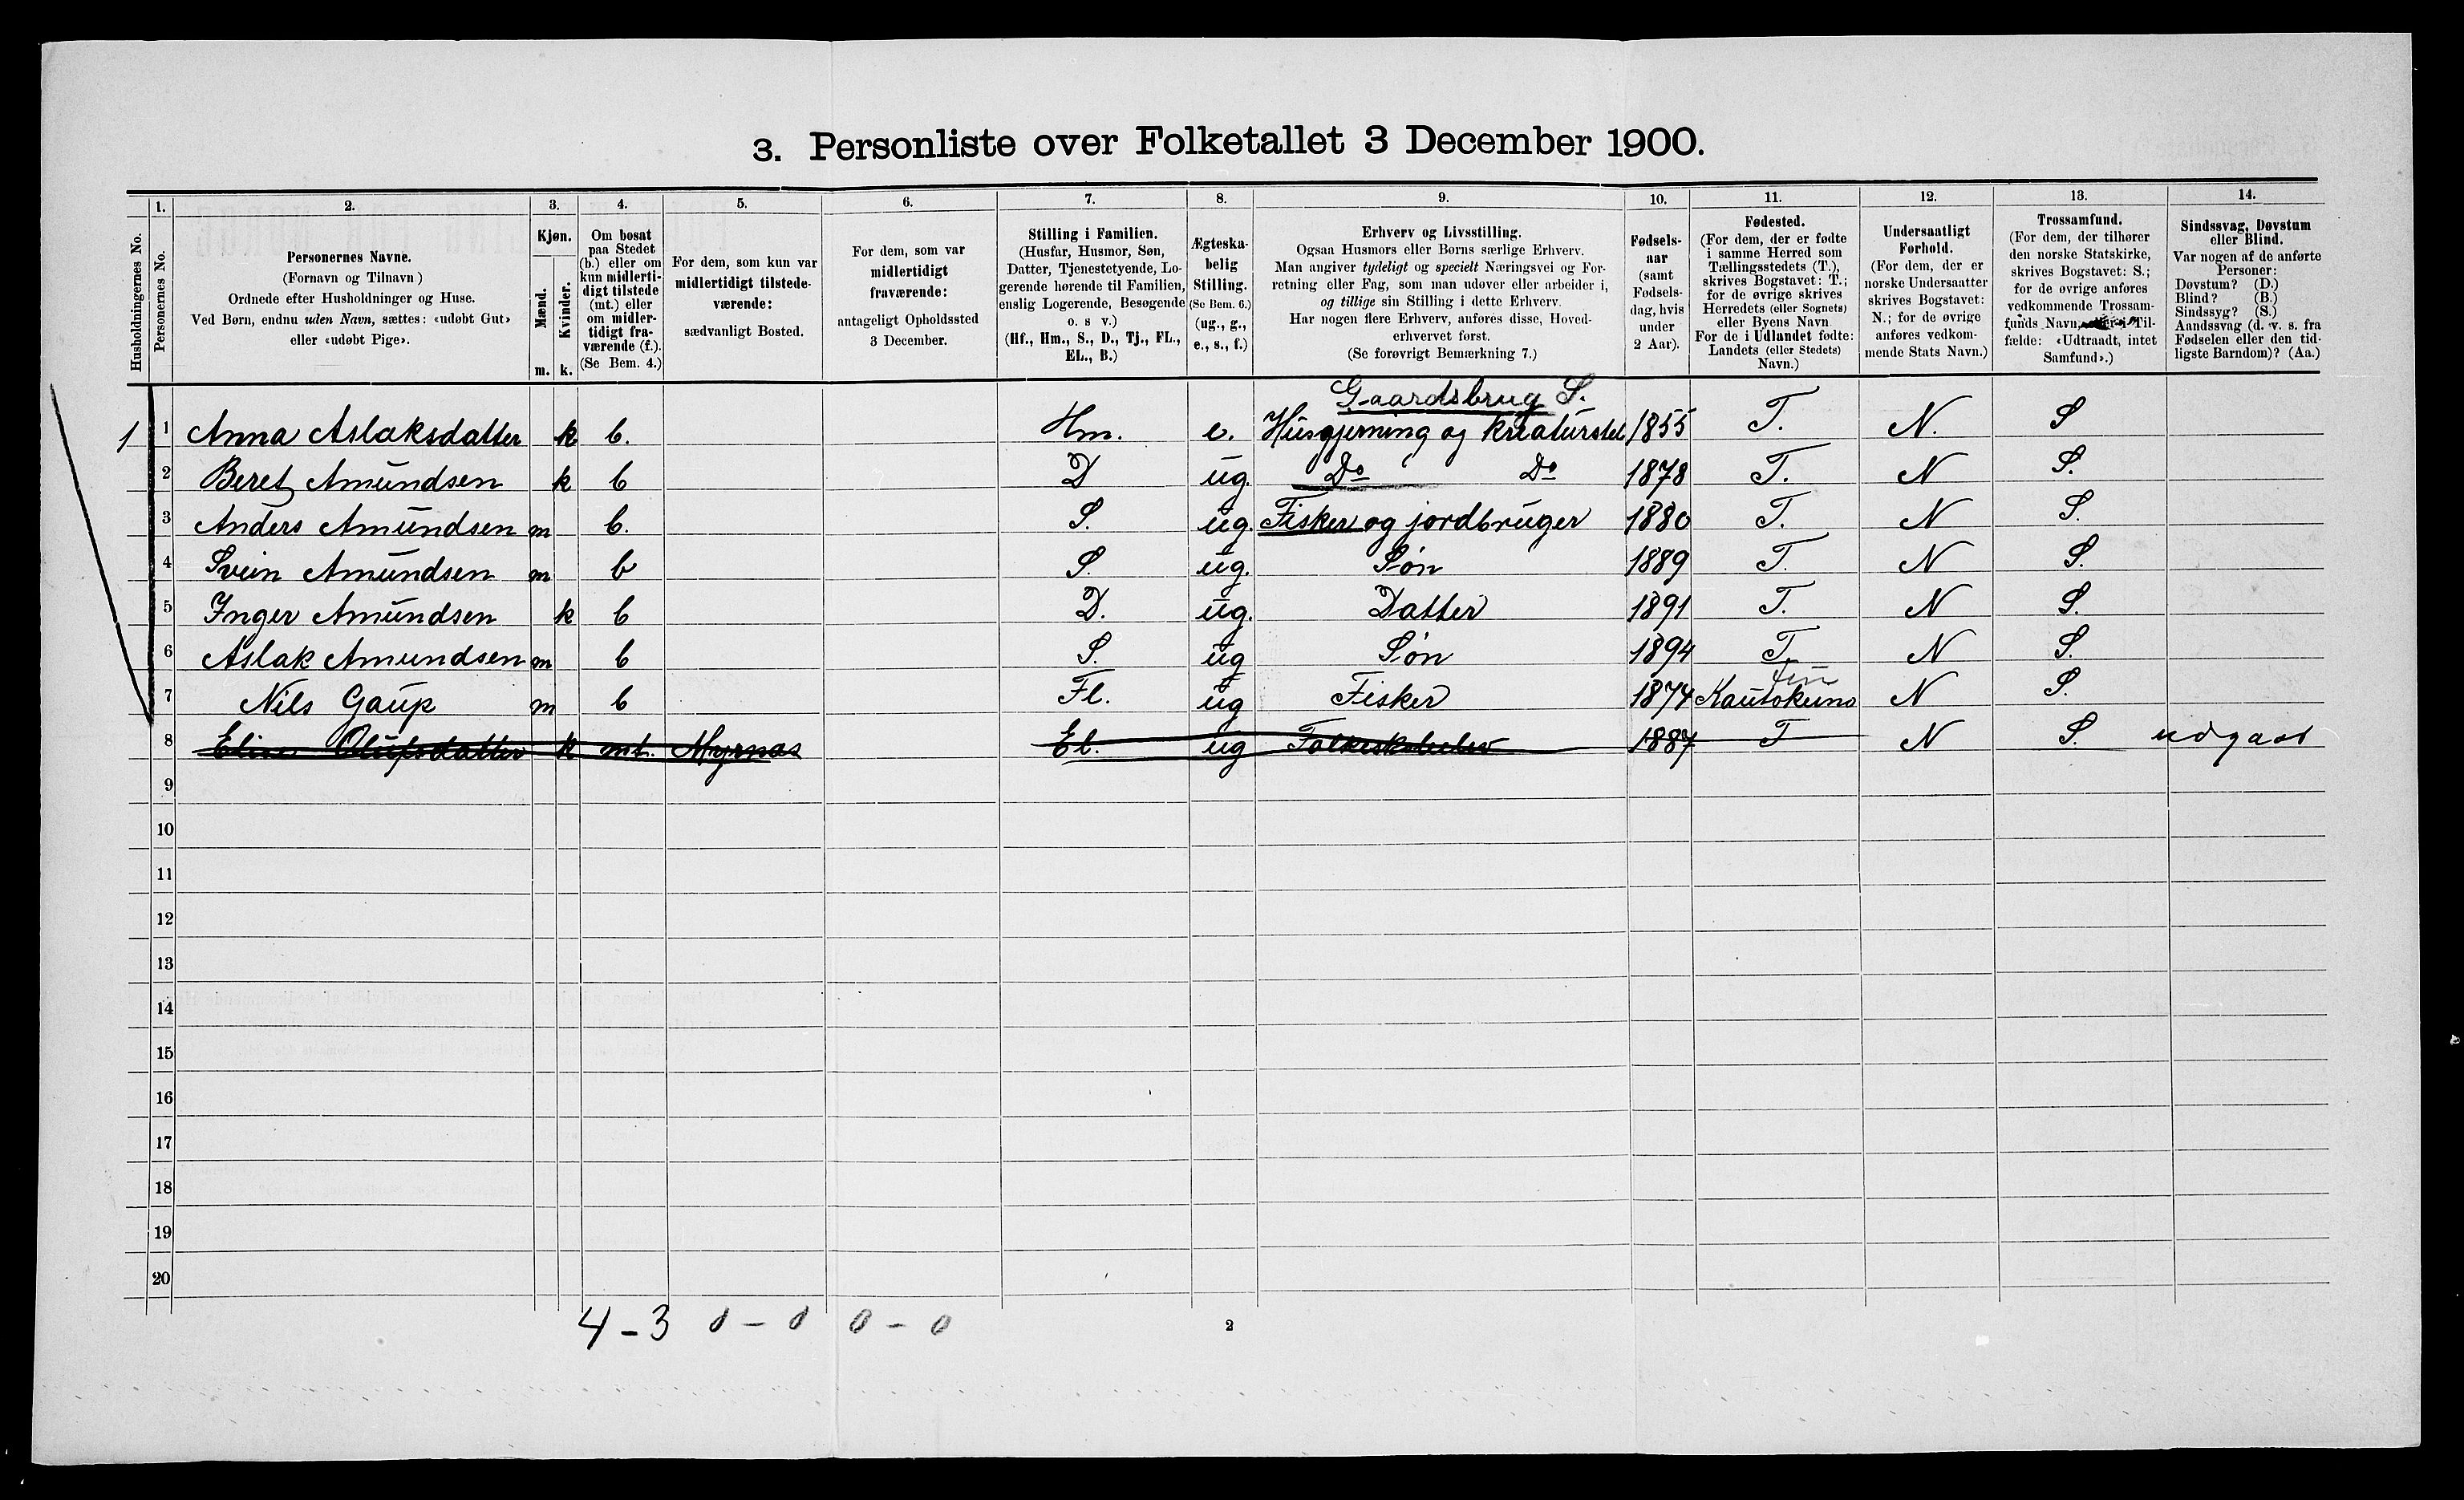 3. Personliste over Folketallet 3 December 1900.
1. 2. 3. 4. 5. 6. 7. 8. 9. 10. 11. 12. 13. 14.
Husholdningernes No.
Personernes No.
Personernes Navne.
(Fornavn og Tilnavn)
Ordnede efter Husholdninger og Huse.
Ved Børn, endnu uden Navn, sættes: «udøbt Gut»
eller «udøbt Pige».
Kjøn.
Mænd.
Kvinder.
m. k.
Om bosat
paa Stedet
(b.) eller om
kun midlerti-
digt tilstede
(mt.) eller
om midler-
tidigt fra-
værende (f.).
(Se Bem. 4.)
For dem, som kun var
midlertidigt tilstede-
værende:
sædvanligt Bosted.
For dem, som var
midlertidigt
fraværende:
antageligt Opholdssted
3 December.
Stilling i Familien.
(Husfar, Husmor, Søn,
Datter, Tjenestetyende, Lo-
gerende hørende til Familien,
enslig Logerende, Besøgende
o. s v.)
(Hf., Hm., S., D., Tj., FL.,
EL., B.)
Ægteska-
belig
Stilling.
(Se Bem. 6.)
(ug., g.,
e., s., f.)
Erhverv og Livsstilling.
Ogsaa Husmors eller Børns særlige Erhverv.
Man angiver tydeligt og specielt Næringsvei og For-
retning eller Fag, som man udøver eller arbeider i,
og tillige sin Stilling i dette Erhverv.
Har nogen flere Erhverv, anføres disse, Hoved-
erhvervet først.
(Se forøvrigt Bemærkning 7.)
Fødsels-
aar
(samt
Fødsels-
dag, hvis
under
2 Aar).
Fødested.
(For dem, der er fødte
i samme Herred som
Tællingsstedets (T.),
skrives Bogstavet: T.;
for de øvrige skrives
Herredets (eller Sognets)
eller Byens Navn.
For de i Udlandet fødte:
Landets (eller Stedets)
Navn.)
Undersaatligt
Forhold.
(For dem, der er
norske Undersaatter
skrives Bogstavet:
N.; for de øvrige
anføres vedkom-
mende Stats Navn.)
Trossamfund.
(For dem, der tilhører
den norske Statskirke,
skrives Bogstavet: S.;
for de øvrige anføres
vedkommende Trossam-
funds Navn, Til-
fælde: «Udtraadt, intet
Samfund».)
Sindssvag, Døvstum
eller Blind.
Var nogen af de anførte
Personer:
Døvstum? (D.)
Blind? (B.)
Sindssyg? (S.)
Aandssvag (d. v. s. fra
Fødselen eller den tid-
ligste Barndom)? (Aa.)
Gaardsbrug S.
1 1 Anna Aslaksdatter k b. Hm. e. Husgjerning og kreaturstel 1855 T. N. S
2 Beret Amundsen k b D ug. Do Do 1878 T. N S.
3 Anders Amundsen m b. S. ug. Fisker og jordbruger 1880 T. N S.
4 Svein Amundsen m b S. ug. Søn 1889 T. N S.
5 Inger Amundsen k b D. ug. Datter 1891 T. N S.
6 Aslak Amundsen m b S. ug Søn 1894 T. N S.
Fin
7 Nils Gaup m b Fl. ug Fisker 1874 Kautokeino N S.
8 Elise Olufsdatter k mt. Myrnæs El. ug Folkeskoleelev 1887 T N S. udgaar
9
10
11
12
13
14
15
16
17
18
19
20
4 - 3 0 - 0 0 - 0
2